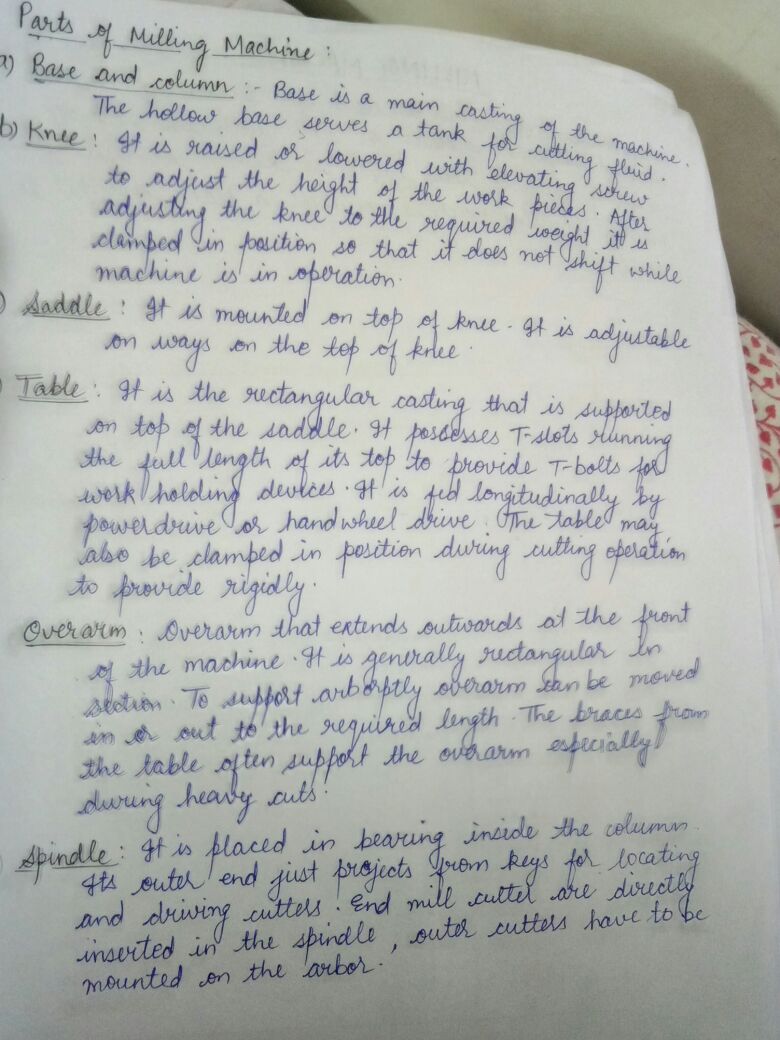 Parts of Milling Machine :
a) Base and column :- Base is a main casting of the machine.
The hollow base serves a tank for cutting fluid.
b) Knee : It is raised or lowered with elevating screw
to adjust the height of the work pieces. After
adjusting the knee to the required weight it is
clamped in position so that it does not shift while
machine is in operation.
Saddle : It is mounted on top of knee. It is adjustable
on ways on the top of knee.
Table : It is the rectangular casting that is supported
on top of the saddle. It possesses T-slots running
the full length of its top to provide T-bolts for
work holding devices. It is fed longitudinally by
powerdrive or handwheel drive. The table may
also be clamped in position during cutting operation
to provide rigidly.
Overarm : Overarm that extends outwards at the front
of the machine. It is generally rectangular in
section. To support overarm can be moved
in or out to the required length. The braces from
the table often support the overarm especially
during heavy cuts.
Spindle : It is placed in bearing inside the column.
Its outer end just projects from keys for locating
and driving cutters. End mill cutter are directly
inserted in the spindle, outer cutters have to be
mounted on the arbor.